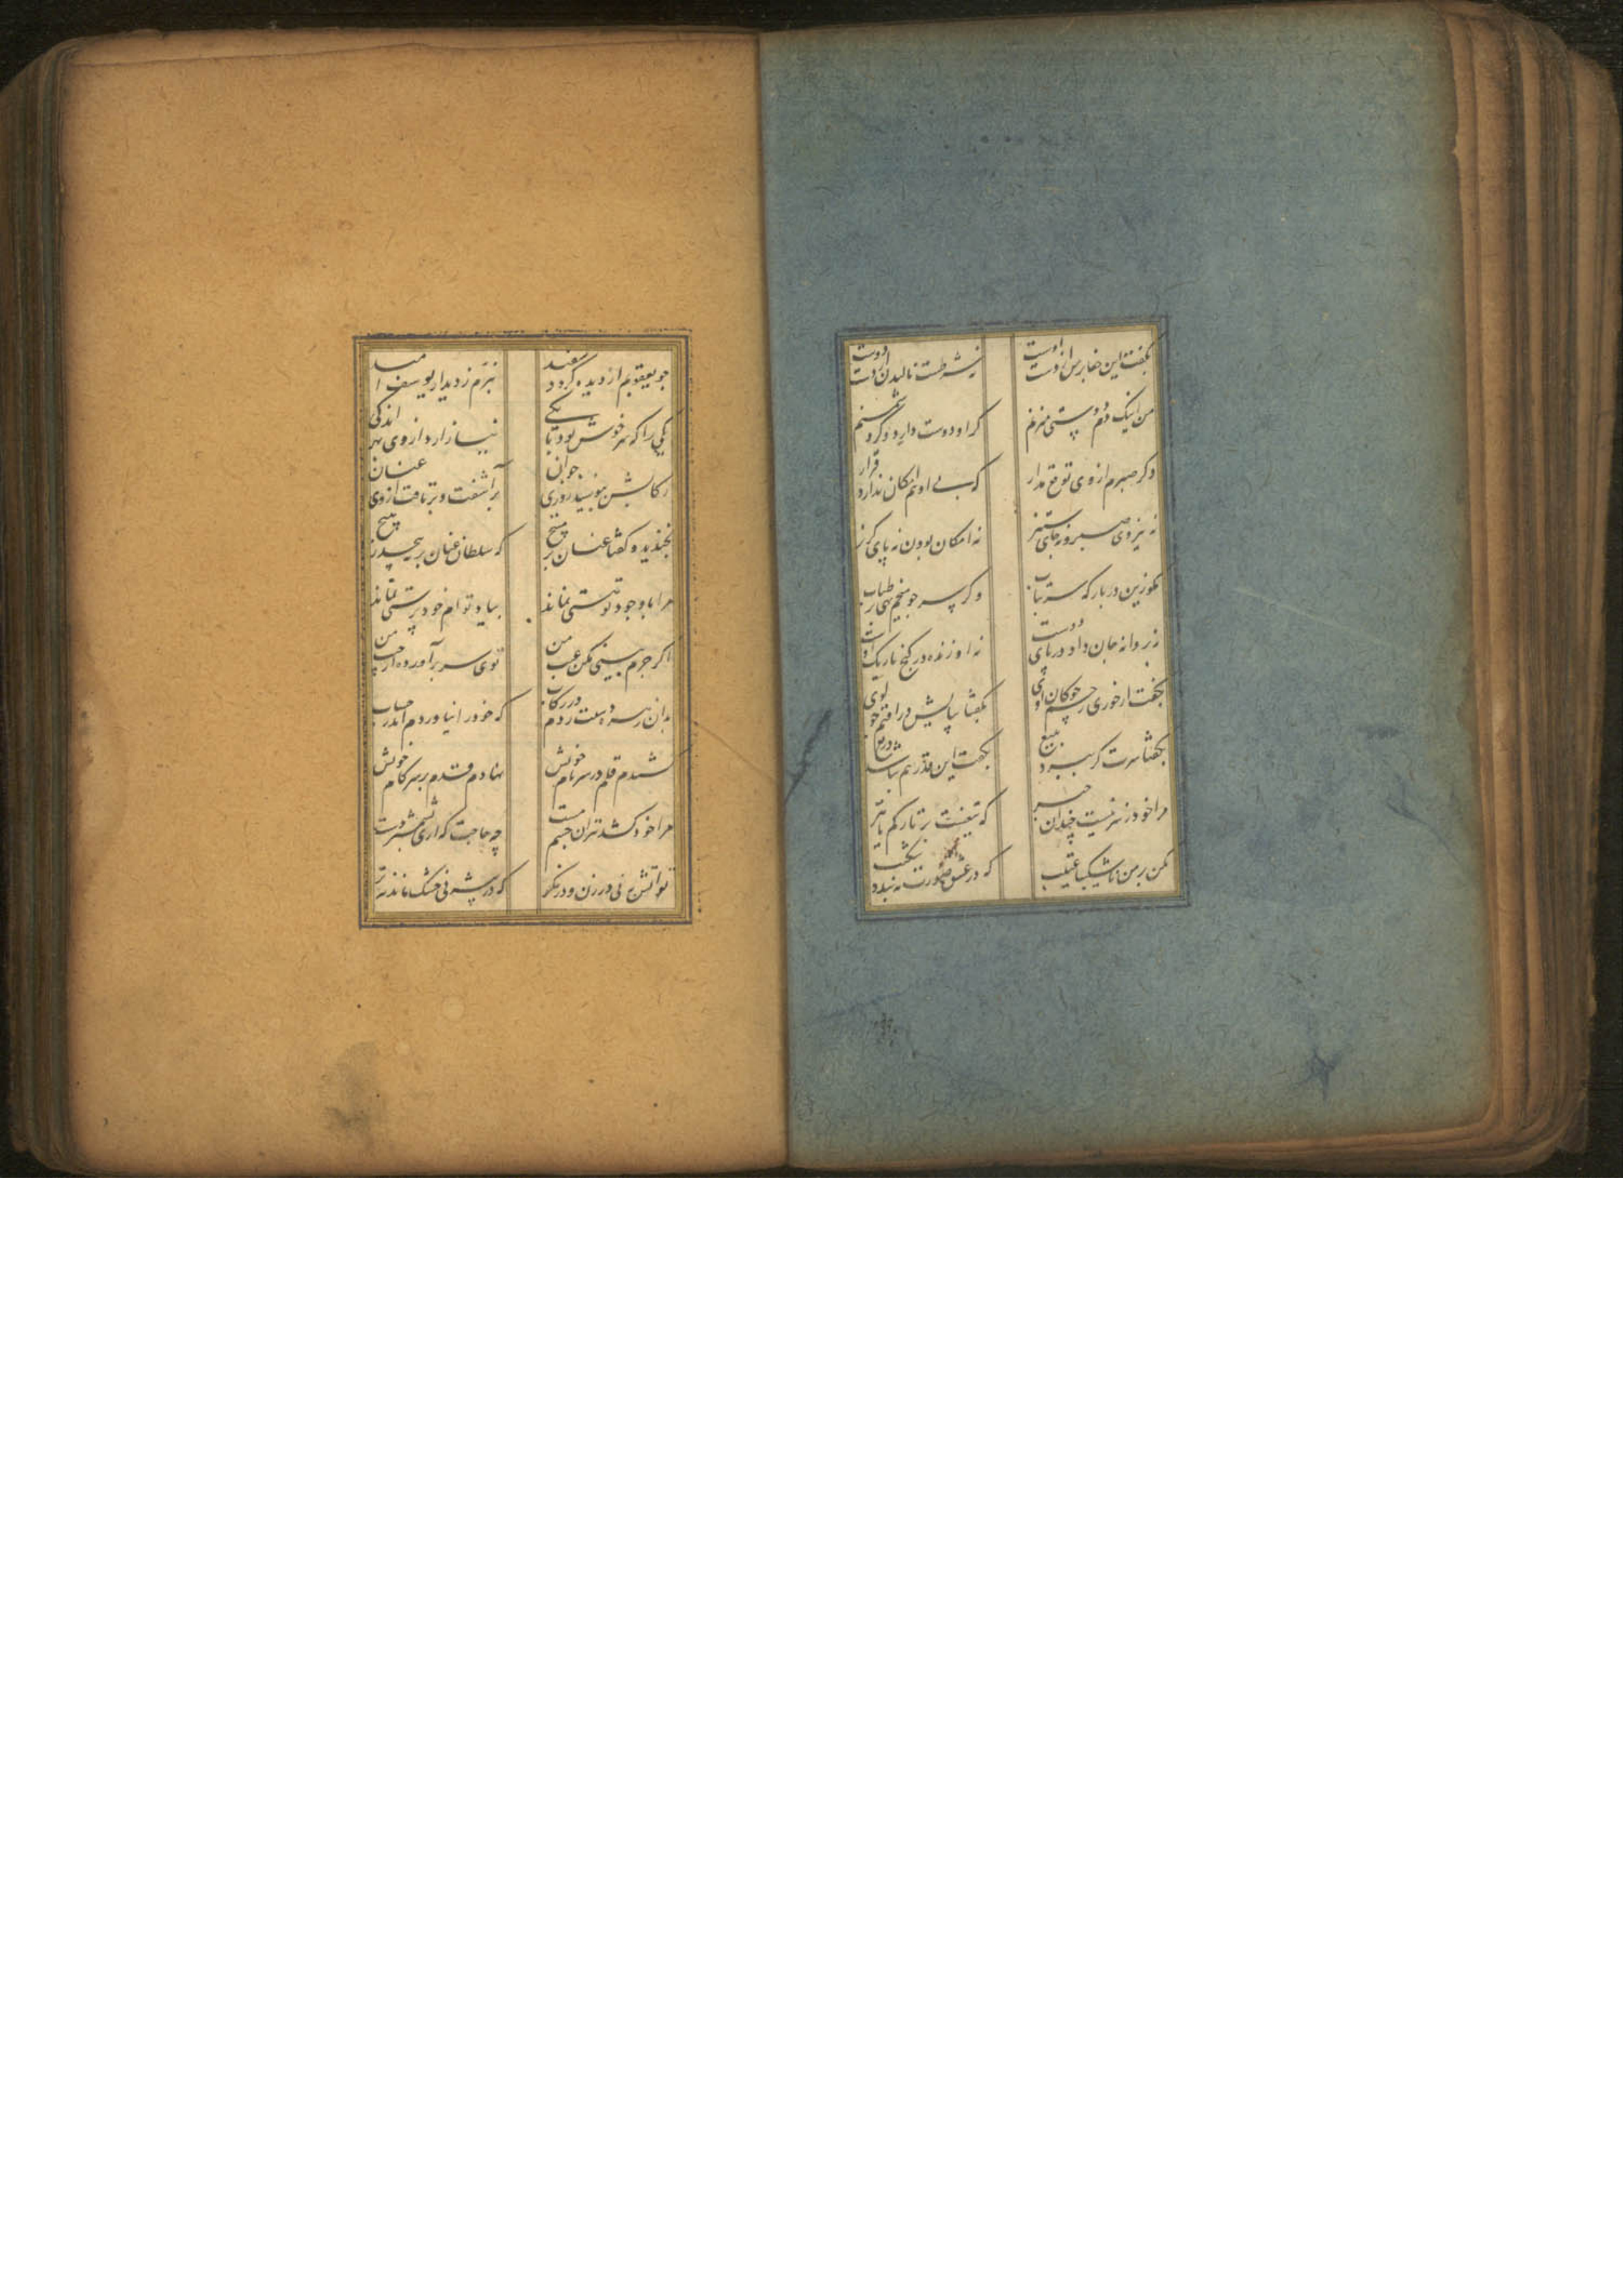 بگفت این جفا بر من از دست اوست
نه شرطست نالیدن از دست دوست
من اینک دم دوستی میزنم
گر او دوست دارد وگر دشمنم
ز من صبر بی او توقع مدار
که بی او هم امکان ندارد قرار
نه نیروی صبرم نه جای ستیز
نه امکان بودن نه پای گریز
مگو زین در بارگه سر بتاب
وگر سر چو میخم نهی در طناب
نه پروانه جان داده در پای دوست
به از زنده در کنج تاریک اوست
بگفت ار خوری زخم چوگان اوی
بگفتا بپایش در افتم چو گوی
بگفتا سرت گر ببرد بتیغ
بگفت این قدر هم نباشد دریغ
مرا خود ز سر نیست چندان خبر
که تیغست بر تارکم یا تبر
مکن بر من ناشکیبا عتیب
که در عشق صورت نبندد شکیب
چو یعقوبم ار دیده گردد سفید
نبرم ز دیدار یوسف امید
یکی را که سر خوش بود با یکی
نیازارد از وی بهر اندکی
رکابش ببوسید روزی جوان
برآشفت و برتافت از وی عنان
بخندید و گفتا عنان بر مپیچ
که سلطان عنان بر نپیچد ز هیچ
مرا با وجود تو هستی نماند
بیاد توام خود پرستی نماند
اگر جرم بینی مکن عیب من
توی سر برآورده از جیب من
بدان زهره دستت زدم در رکاب
که خود را نیاوردم اندر حساب
کشیدم قلم در سر نام خویش
نهادم قدم بر سر کام خویش
مرا خود کشد تیر آن چشم مست
چه حاجت که آری بشمشیر دست
تو آتش بنی در زن و درگذر
که در بیشه نی خشک ماند نه تر